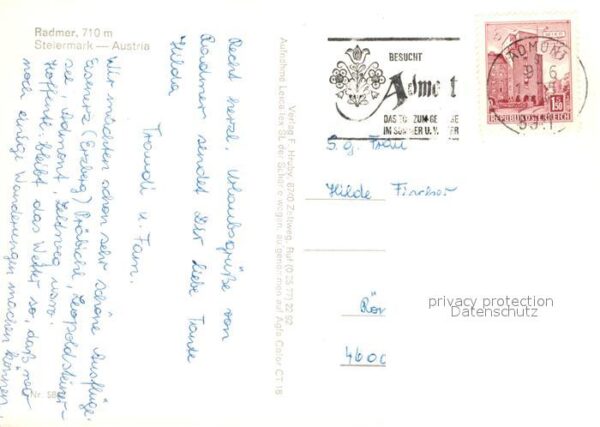 Radmer, 710 m
Steiermark — Austria
Recht herzl. Urlaubsgrüße von
Radmer sendet Dir liebe Tante
Hilda
Traudi u. Fam.
Wir machten schon sehr schöne Ausflüge.
Eisenerz (Erzberg) Präbichl, Leopoldsteiner-
see, Admont, Zeltweg usw.
Hoffentl. bleibt das Wetter so, daß wir
noch einige Wanderungen machen können.
Nr. 58
Verlag F. Hruby, 8740 Zeltweg, Ruf (0 35 77) 22 92
Aufnahme
auf Agfa Color CT 18
BESUCHT
Admo t
DAS TO ZUM GE SE
IM SO ER U. ER
ADMONT
WIEN
1.50
REPUBLIK ÖSTERREICH
S. g. Frau
Hilde Fischer
Rö
4600
privacy protection
Datenschutz